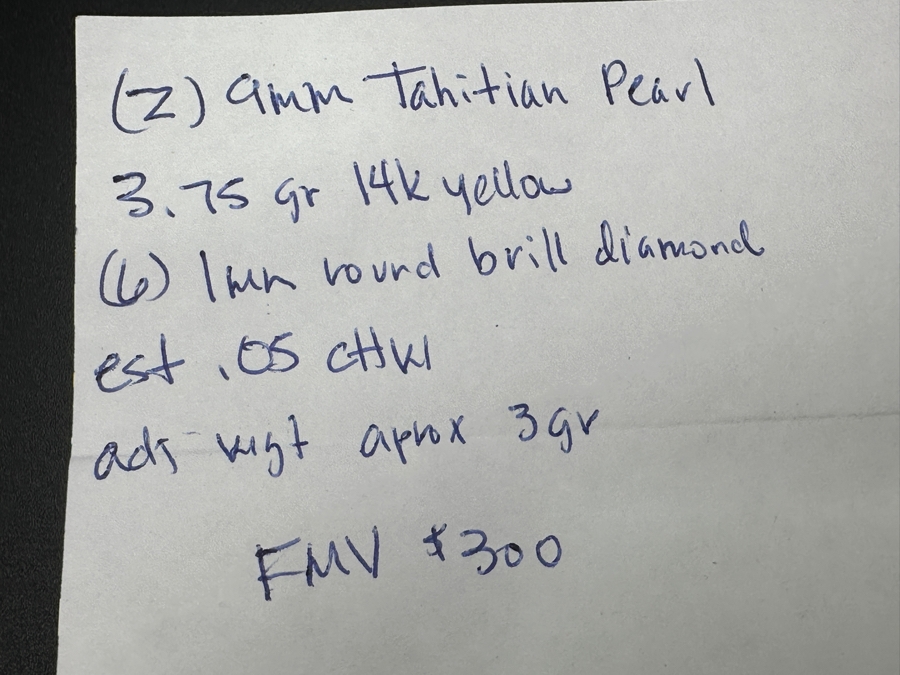 (2) 9mm Tahitian Pearl
3.75 gr 14k yellow
(6) 1mm round brill diamond
est .05 cttw
adj wgt aprox 3gr
FMV $300